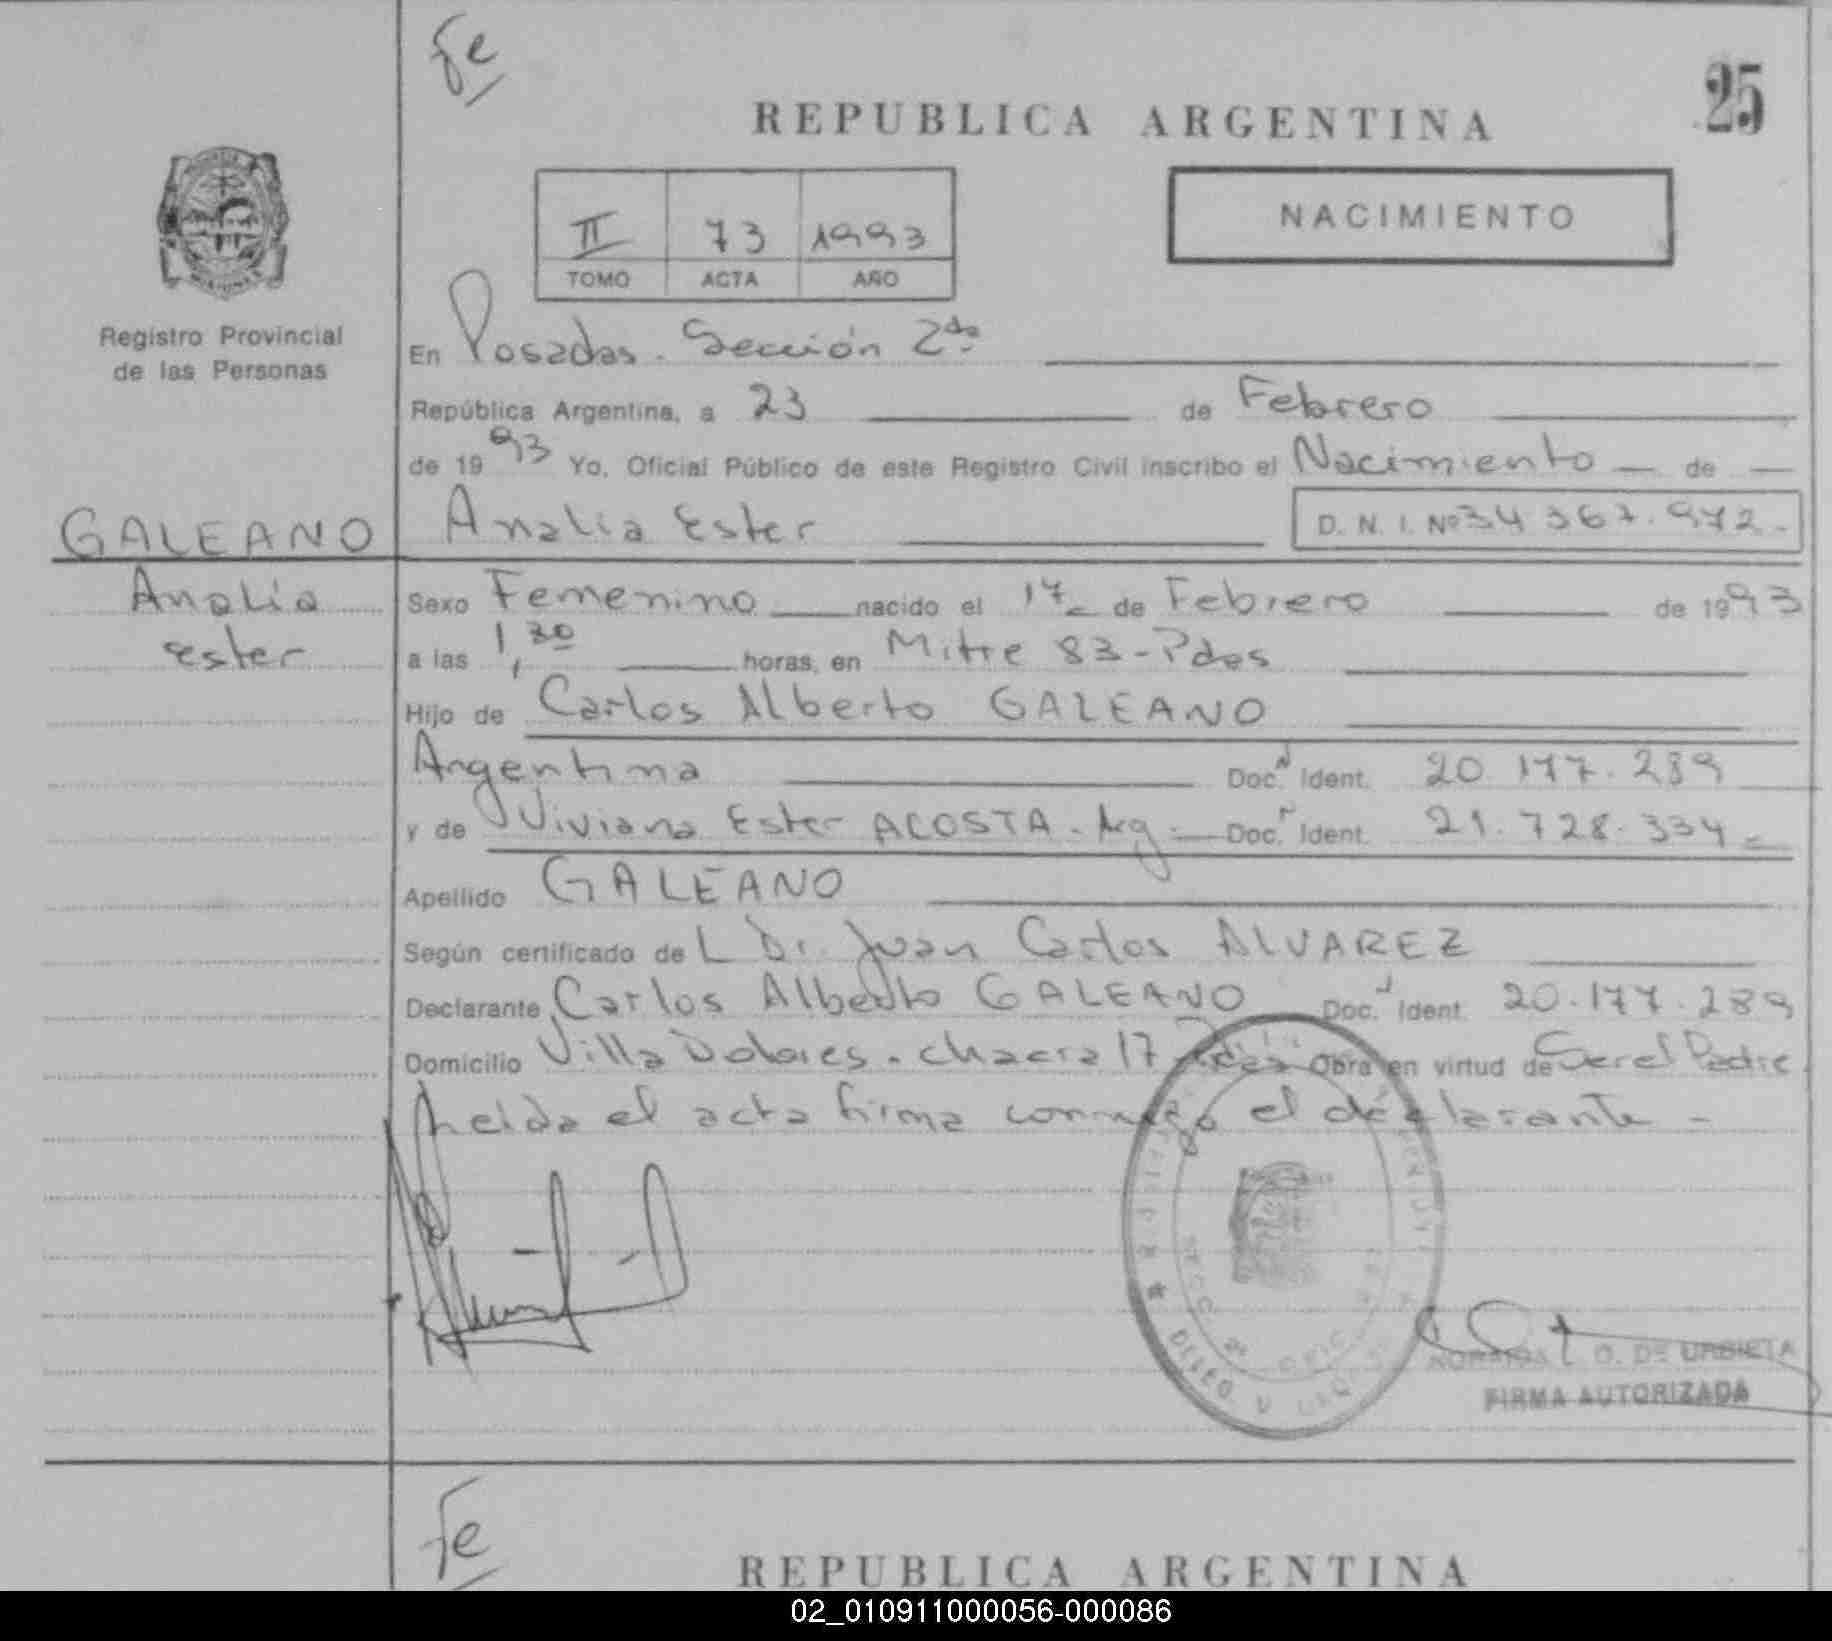 fe
25
REPUBLICA ARGENTINA
NACIMIENTO
II 73 1993
TOMO ACTA AÑO
Registro Provincial
de las Personas
En Posadas. Sección 2da
República Argentina, a 23 de Febrero
de 1993 Yo, Oficial Público de este Registro Civil inscribo el Nacimiento de
GALEANO Analia Ester D. N. I. Nº 34 367.972.-
Analia
Ester
Sexo Femenino nacido el 17 de Febrero de 1993
a las 1,30 horas, en Mitre 83 - Pdas
Hijo de Carlos Alberto GALEANO
Argentina Doc. Ident. 20.177.289
y de Viviana Ester ACOSTA - Arg - Doc. Ident. 21.728.334 -
Apellido GALEANO
Según certificado de L Dr. Juan Carlos ALVAREZ
Declarante Carlos Alberto GALEANO Doc. Ident. 20.177.289
Domicilio Villa Dolores - chacra 17 Pdas Obra en virtud de Ser el Padre
Leida el acta firma conmigo el declarante -
SECC 2a
O. DE URBIETA
FIRMA AUTORIZADA
fe
REPUBLICA ARGENTINA
02_010911000056-000086